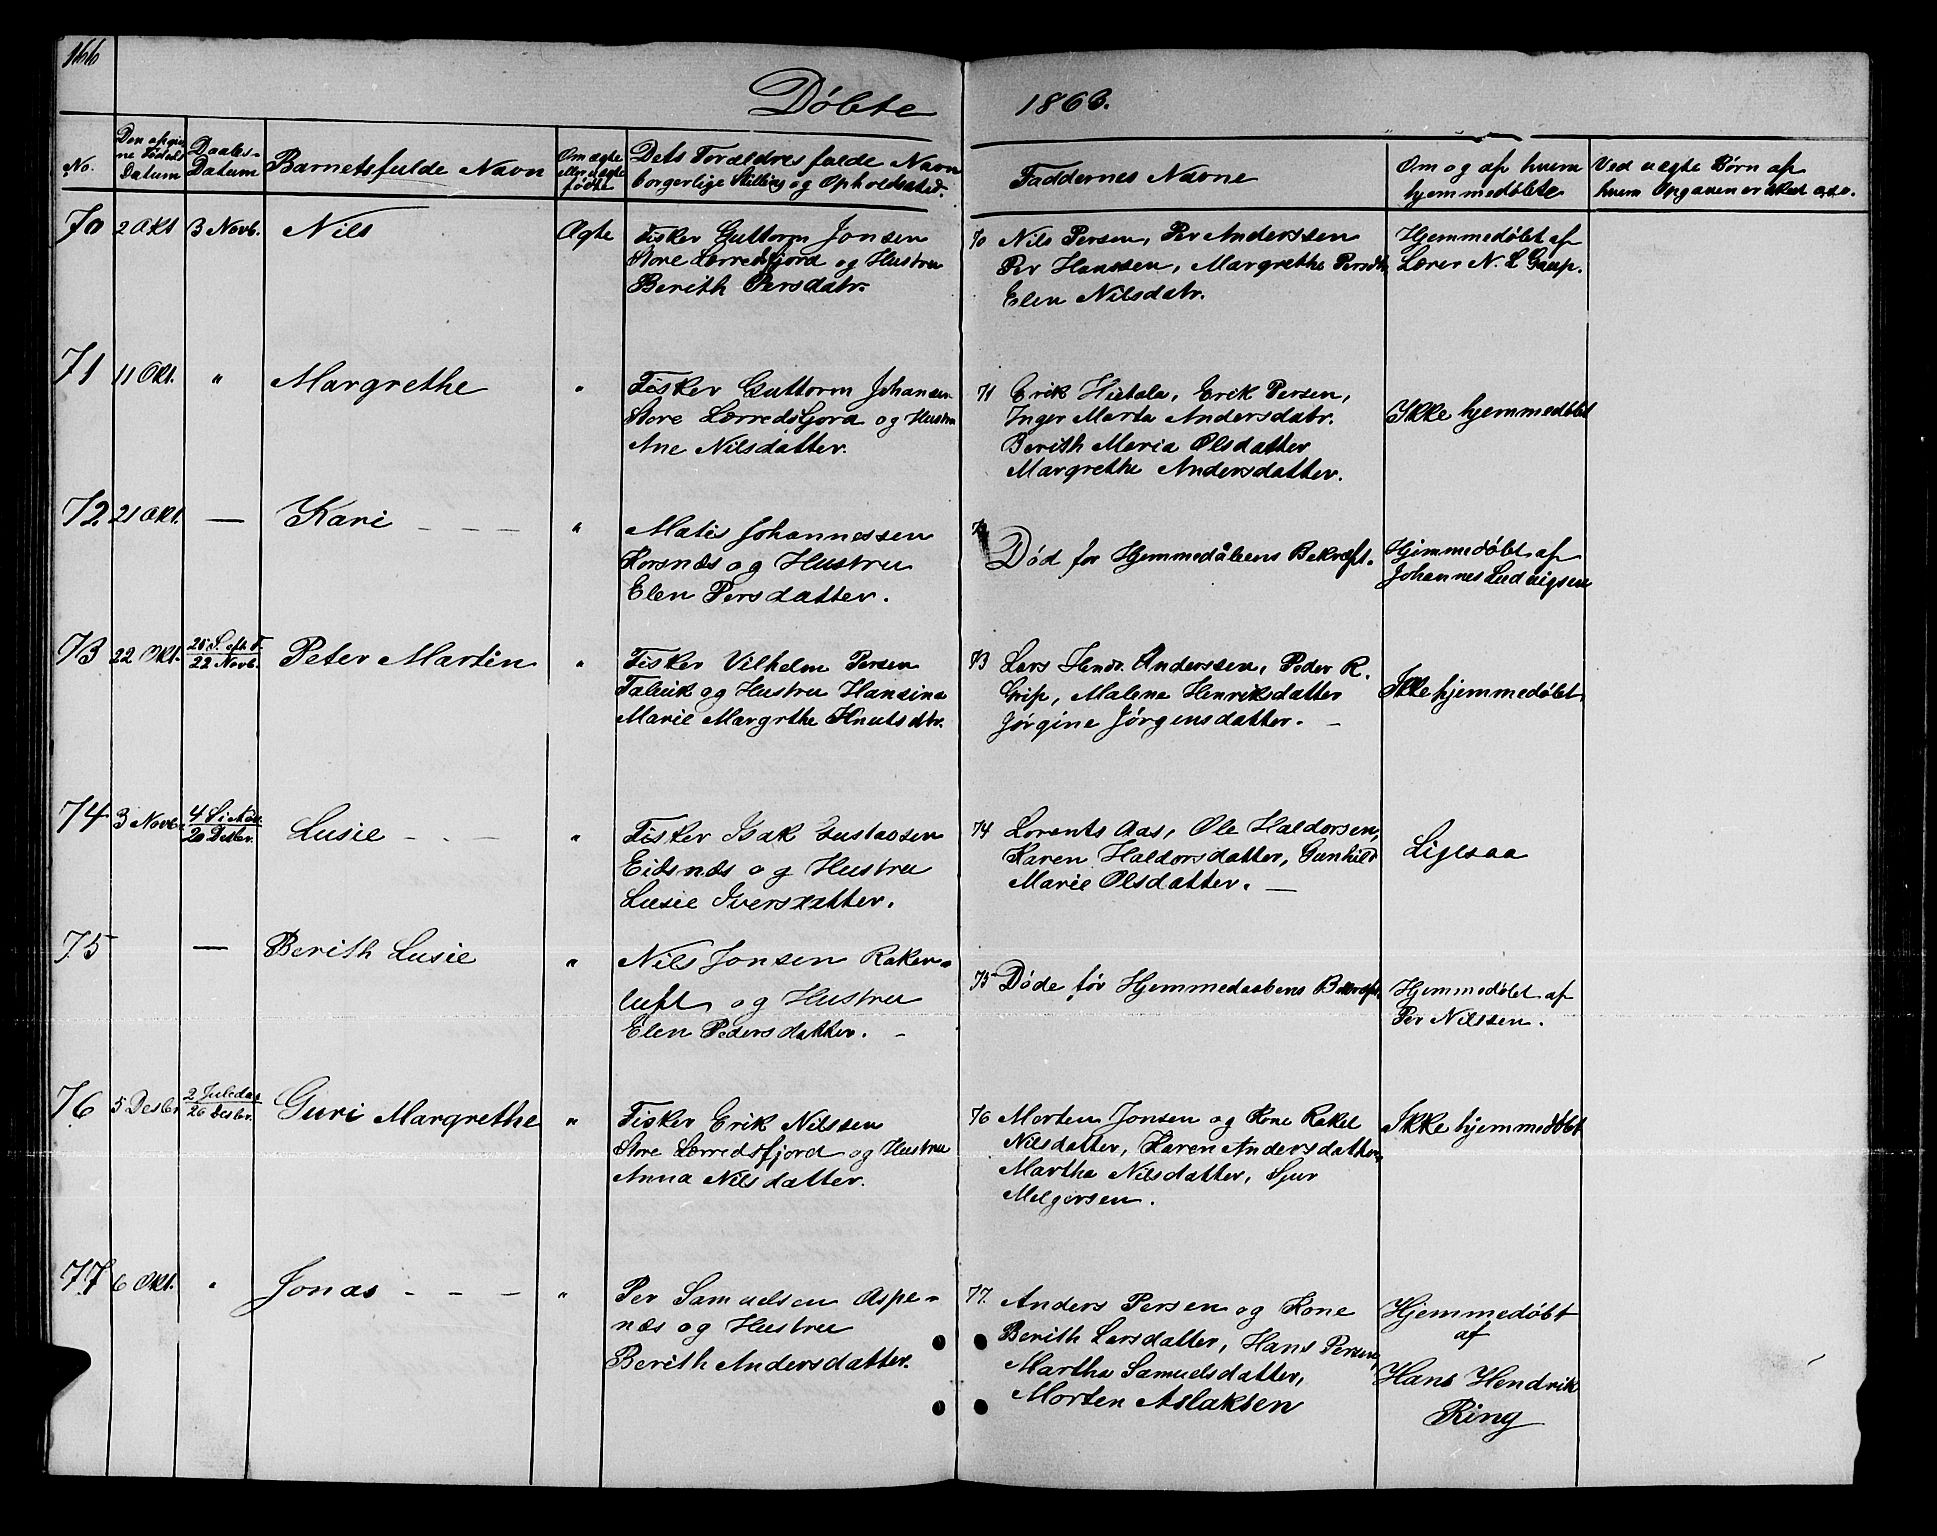 166
Døbte 1866.
No.
Den opgivne Fødsels Datum
Daabs-Datum
Barnets fulde Navn
Om ægte eller uægte fødte
Dets Forældres fulde Navn
borgerlige Stilling og Opholdssted.
Faddernes Navne
Om og af hvem
hjemmedøbte
Ved uægte Børn af
hvem Opgaven er sket osv.
70 2 Okt 3 Novb. Nils Ægte
Fisker Guttorm Jonsen
Store Lerredsfjord og Hustru
Berith Persdatr.
70 Nils Persen, Per Anderssen
Per Hanssen, Margrethe Persdtr,
Elen Nilsdatr.
Hjemmedøbt af
Lærer N. L Gaup.
71 11 Okt. " Margrethe "
Fisker Guttorm Johansen
Store Lerredsfjord og Hustru
Ane Nilsdatter.
71 Erik Hietala, Erik Persen,
Inger Marta Andersdatr.
Berith Maria Olsdatter
Margrethe Andersdatter.
Ikke hjemmedøbt
72. 21 Okt. — Kari - - - "
Matis Johannessen
Korsnæs og Hustru
Elen Persdatter.
72 Død før Hjemmedåbens Bekræft.
Hjemmedøbt af
Johannes Ludvigsen
73 22 Okt. 25 S. eft T.
22 Novb. Peter Martin "
Fisker Vilhelm Persen
Talvik og Hustru Hansina
Marie Margrthe Knutsdtr.
73 Lars Hendr. Anderssen, Peder R.
Grip, Malena Henriksdatter
Jørgine Jørgensdatter. —
Ikke hjemmedøbt
74 3 Novbr 4 S i Adv.
20 Desbr. Lusie - - - "
Fisker Isak Gustavsen
Eidsnæs og Hustru
Lusie Iversdatter.
74 Lorents Aas, Ole Haldorsen,
Karen Haldorsdatter, Gunhild
Marie Olsdatter. —
Ligesaa
75 — Berith Lusie "
Nils Jonsen Raker-
luft og Hustru
Elen Pedersdatter. -
75 Døde før Hjemmedaabens Bekræft.
Hjemmedøbt af
Per Nilssen.
76 5 Desbr 2 Juledag
26 Desbr. Guri Margrethe "
Fisker Erik Nilssen
Store Lerredsfjord og Hustru
Anna Nilsdatter.
76 Morten Jonsen og Kone Rakel
Nilsdatter, Karen Andersdatter,
Martha Nilsdatter, Sjur
Melgersen.
Ikke hjemmedøbt
77 6 Okt. " Jonas - - - "
Per Samuelsen Aspe-
næs og Hustru
Berith Andersdatter.
77. Anders Persen og Kone
Berith Larsdatter, Hans Persen,
Martha Samuelsdatter,
Morten Aslaksen
Hjemmedøbt
af
Hans Hendrik
Ring